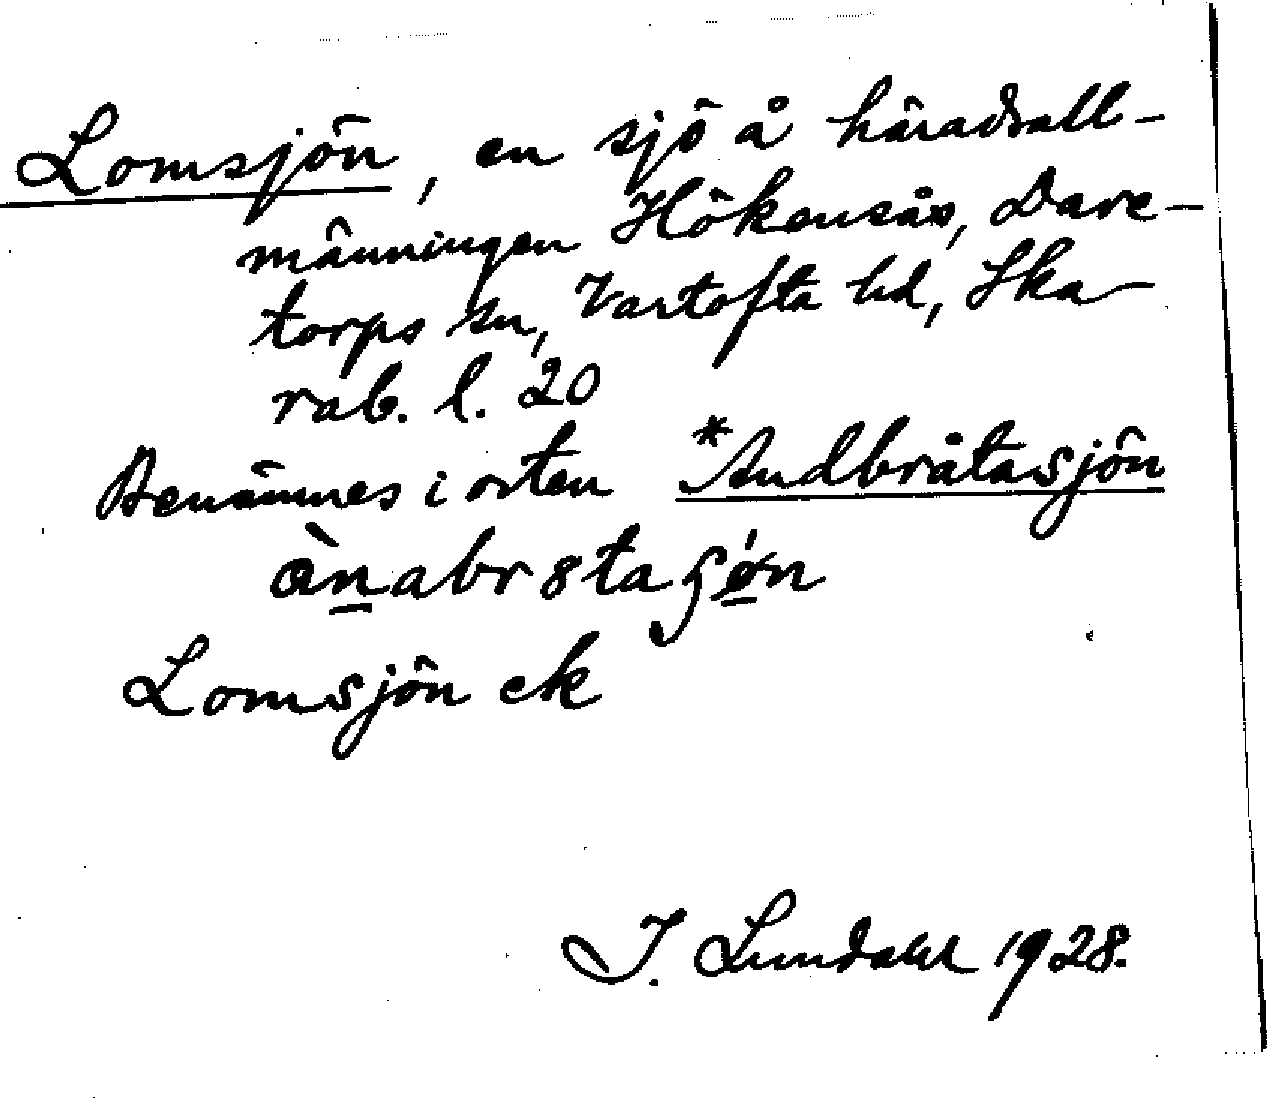 Lomsjön, en sjö å häradsall-
männingen Hökensås, Dare-
torps sn, Vartofta hd, Ska-
rab. l. 20
Benämnes i orten *Andbråtasjön
ànabr8taʂǿn
Lomsjön ek
I. Lundahl 1928.